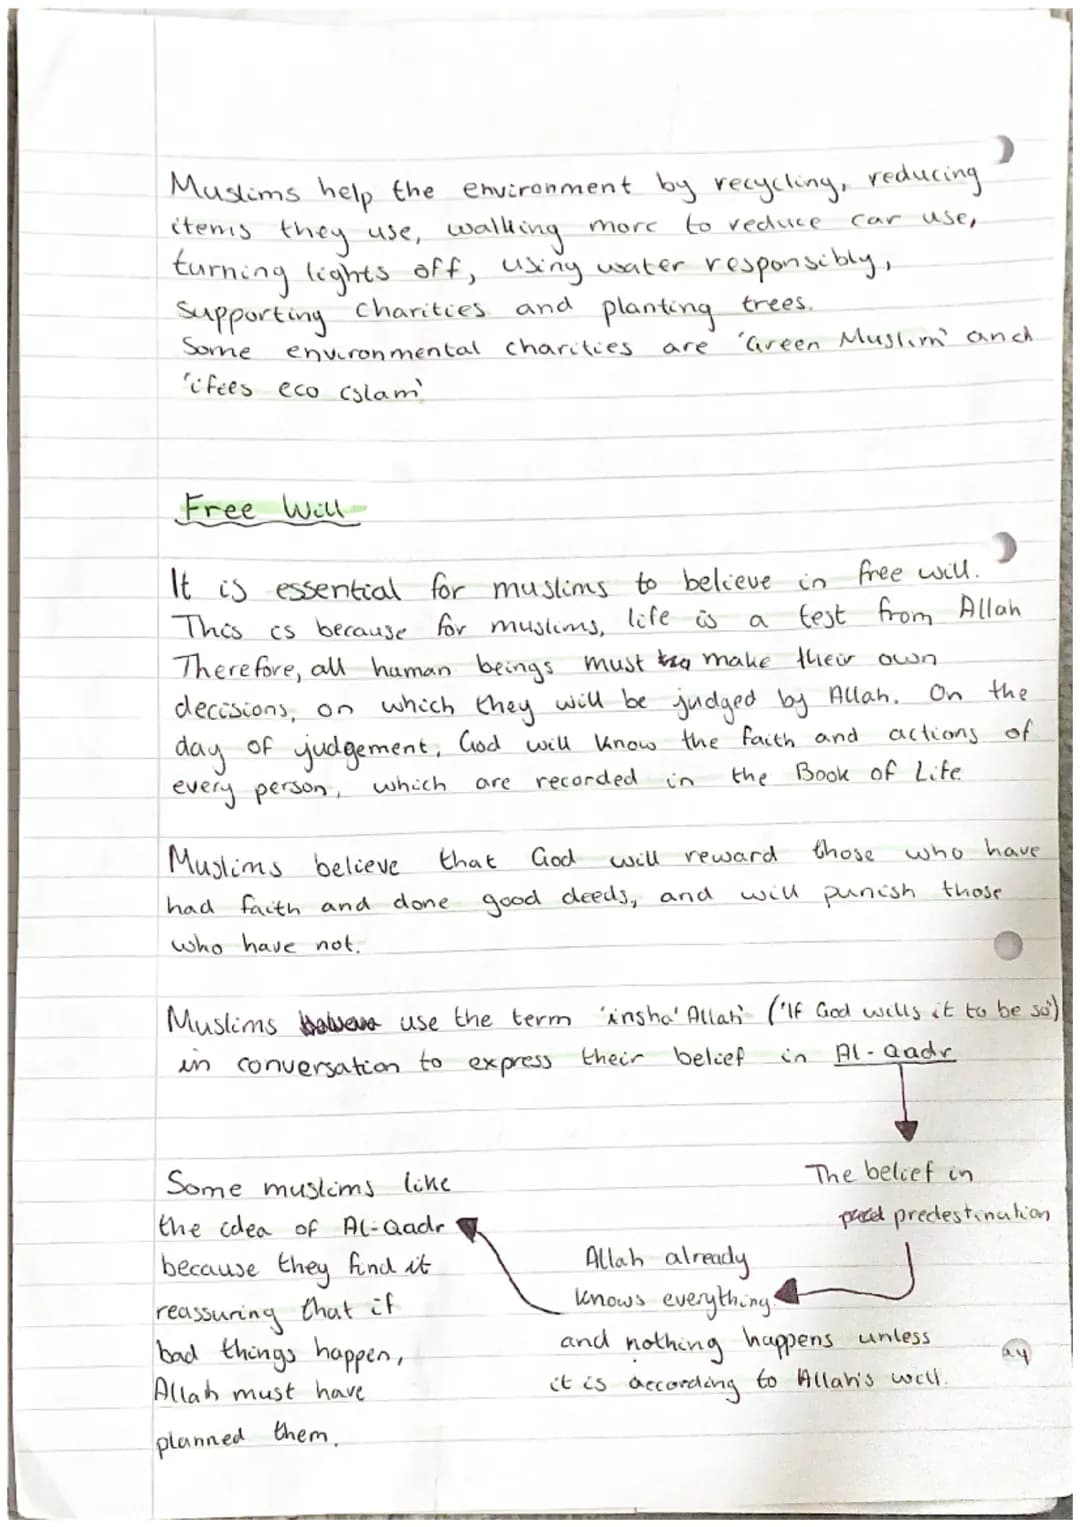 Muslims help the environment by recycling, reducing
items they use, walking more to reduce car use,
turning lights off, using water responsibly,
supporting charities and planting trees.
Some environmental charities are 'Green Muslim' and
'ifees eco islam'
Free Will
It is essential for muslims to believe in free will.
This is because for muslims, life is a test from Allah
Therefore, all human beings must make their own
decisions, on which they will be judged by Allah. On the
day of judgement, God will know the faith and actions of
every person, which are recorded in the Book of Life
Muslims believe that God will reward those who have
had faith and done good deeds, and will punish those
who have not.
Muslims use the term 'insha' Allah' ('If God wills it to be so')
in conversation to express their belief in Al-Qadr
The belief in
predestination
Allah already
knows everything
and nothing happens unless
it is according to Allah's will.
Some muslims like
the idea of Al-Qadr
because they find it
reassuring that if
bad things happen,
Allah must have
planned them.